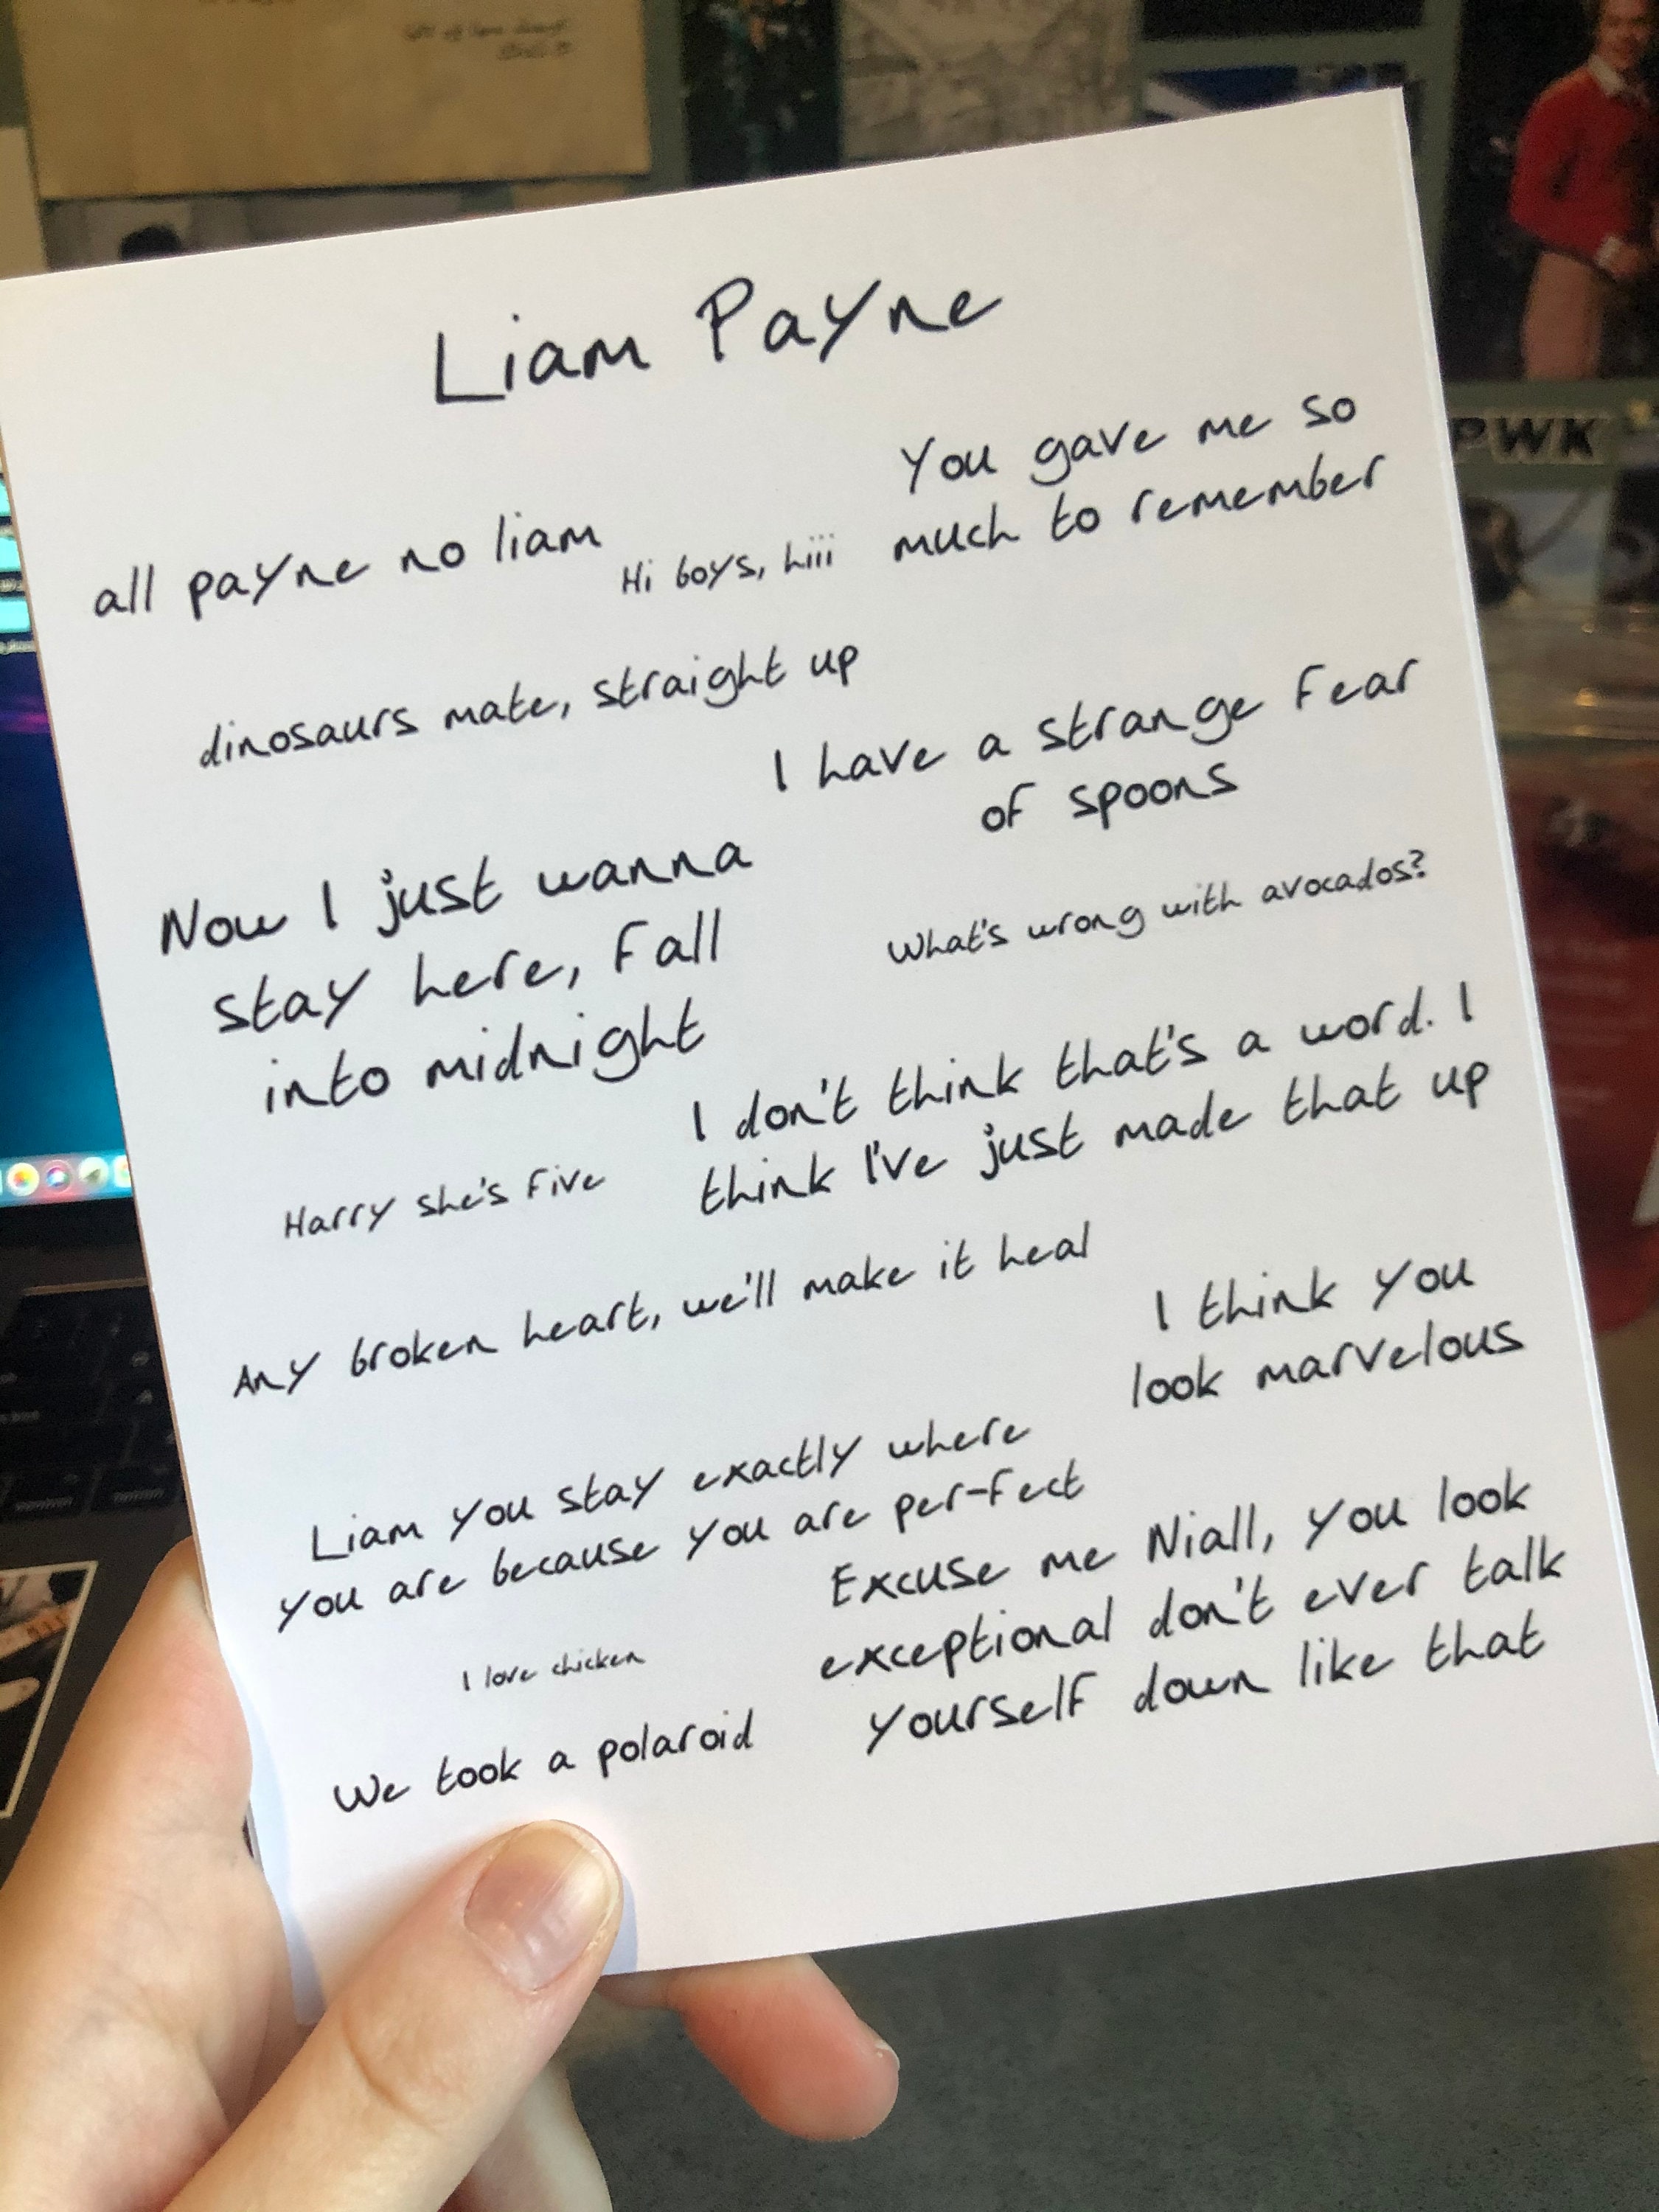 Liam Payne
You gave me so
much to remember
all payne no liam
Hi boys, hiii
dinosaurs mate, straight up
I have a strange fear
of spoons
Now I just wanna
stay here, fall
into midnight
What's wrong with avocados?
I don't think that's a word. I
think I've just made that up
Harry she's five
Any broken heart, we'll make it heal
I think you
look marvelous
Liam you stay exactly where
you are because you are per-fect
Excuse me Niall, you look
exceptional don't ever talk
yourself down like that
I love chicken
We took a polaroid
PWK